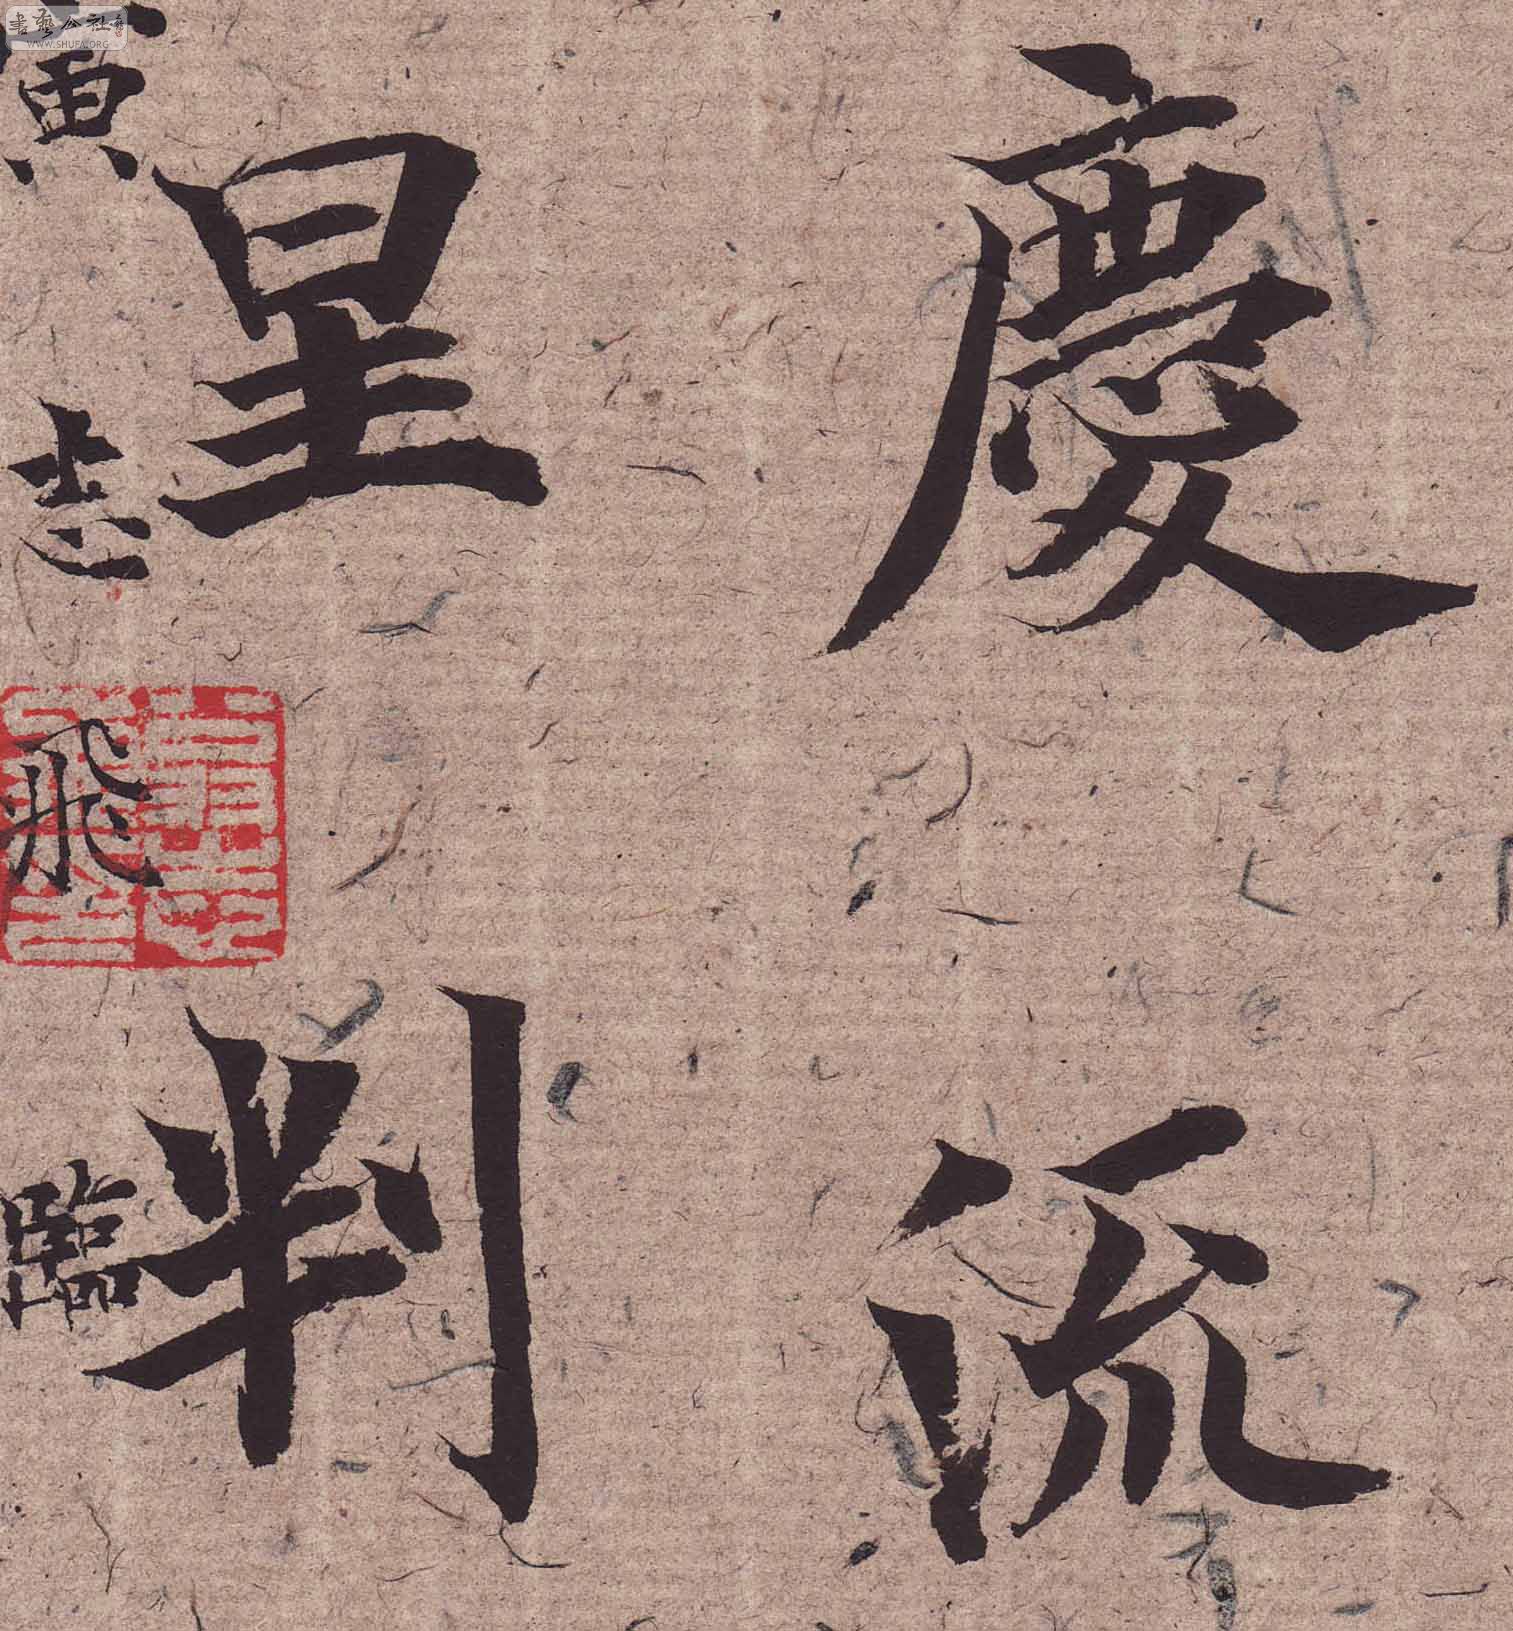 慶流
星判
寅志飛臨
書藝公社
WWW.SHUFA.ORG